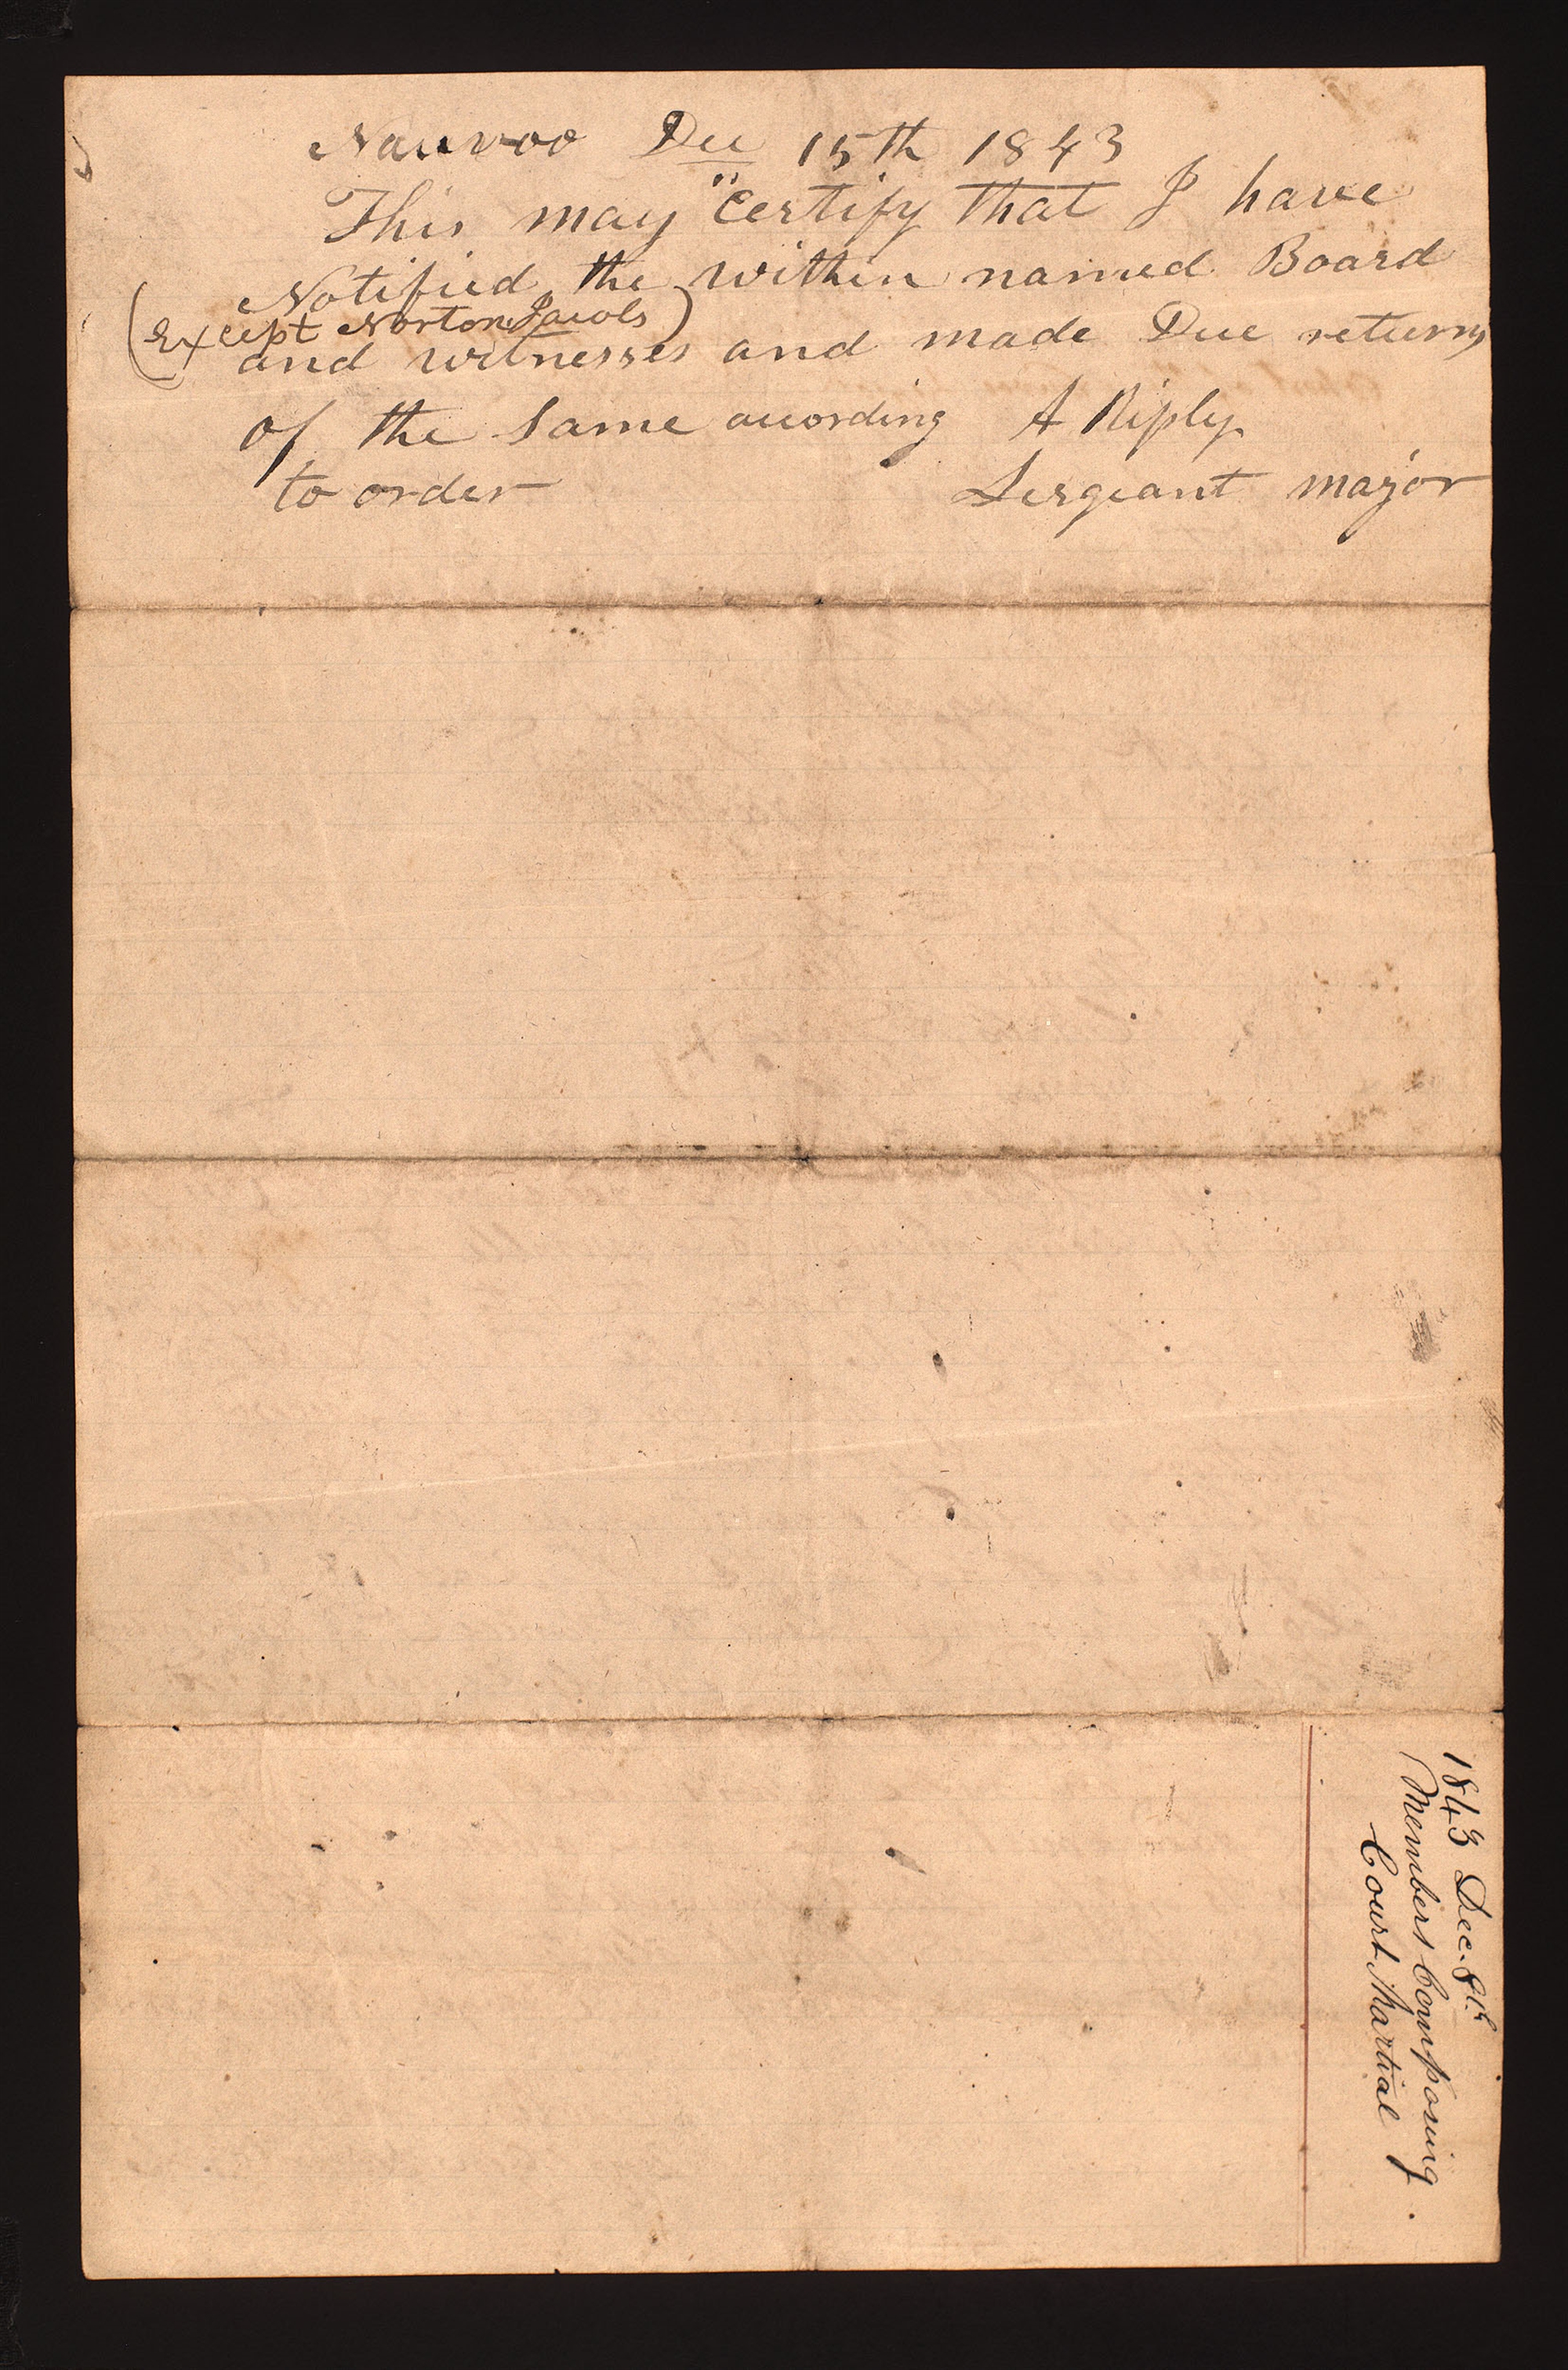 Nauvoo Dec 15th 1843
This may "Certify that I have
Notified the within named Board
(Except Norton Jacobs)
and witnesses and made Due returns
of the Same acording A Riply
to order Sergeant major
1843 Dec. 8th
Members Composing
Court Martial.